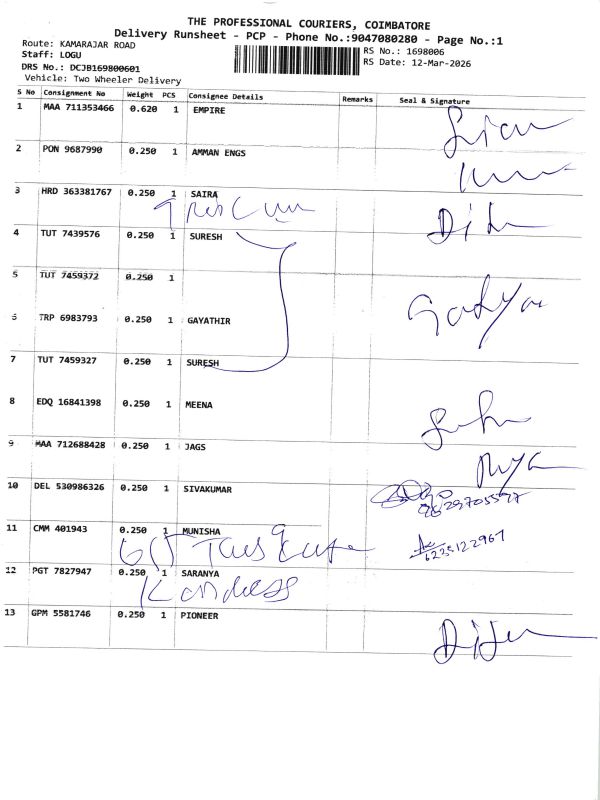 THE PROFESSIONAL COURIERS, COIMBATORE
Delivery Runsheet - PCP - Phone No.:9047080280 - Page No.:1
Route: KAMARAJAR ROAD
Staff: LOGU
RS No.: 1698006
DRS No.: DCJB169800601
RS Date: 12-Mar-2026
Vehicle: Two Wheeler Delivery
S No Consignment No Weight PCS Consignee Details Remarks Seal & Signature
1 MAA 711353466 0.620 1 EMPIRE
2 PON 9687990 0.250 1 AMMAN ENGS
3 HRD 363381767 0.250 1 SAIRA
4 TUT 7439576 0.250 1 SURESH
5 TUT 7459372 0.250 1
6 TRP 6983793 0.250 1 GAYATHIR
7 TUT 7459327 0.250 1 SURESH
8 EDQ 16841398 0.250 1 MEENA
9 MAA 712688428 0.250 1 JAGS
10 DEL 530986326 0.250 1 SIVAKUMAR
11 CMM 401943 0.250 1 MUNISHA
6235122967
12 PGT 7827947 0.250 1 SARANYA
13 GPM 5581746 0.250 1 PIONEER